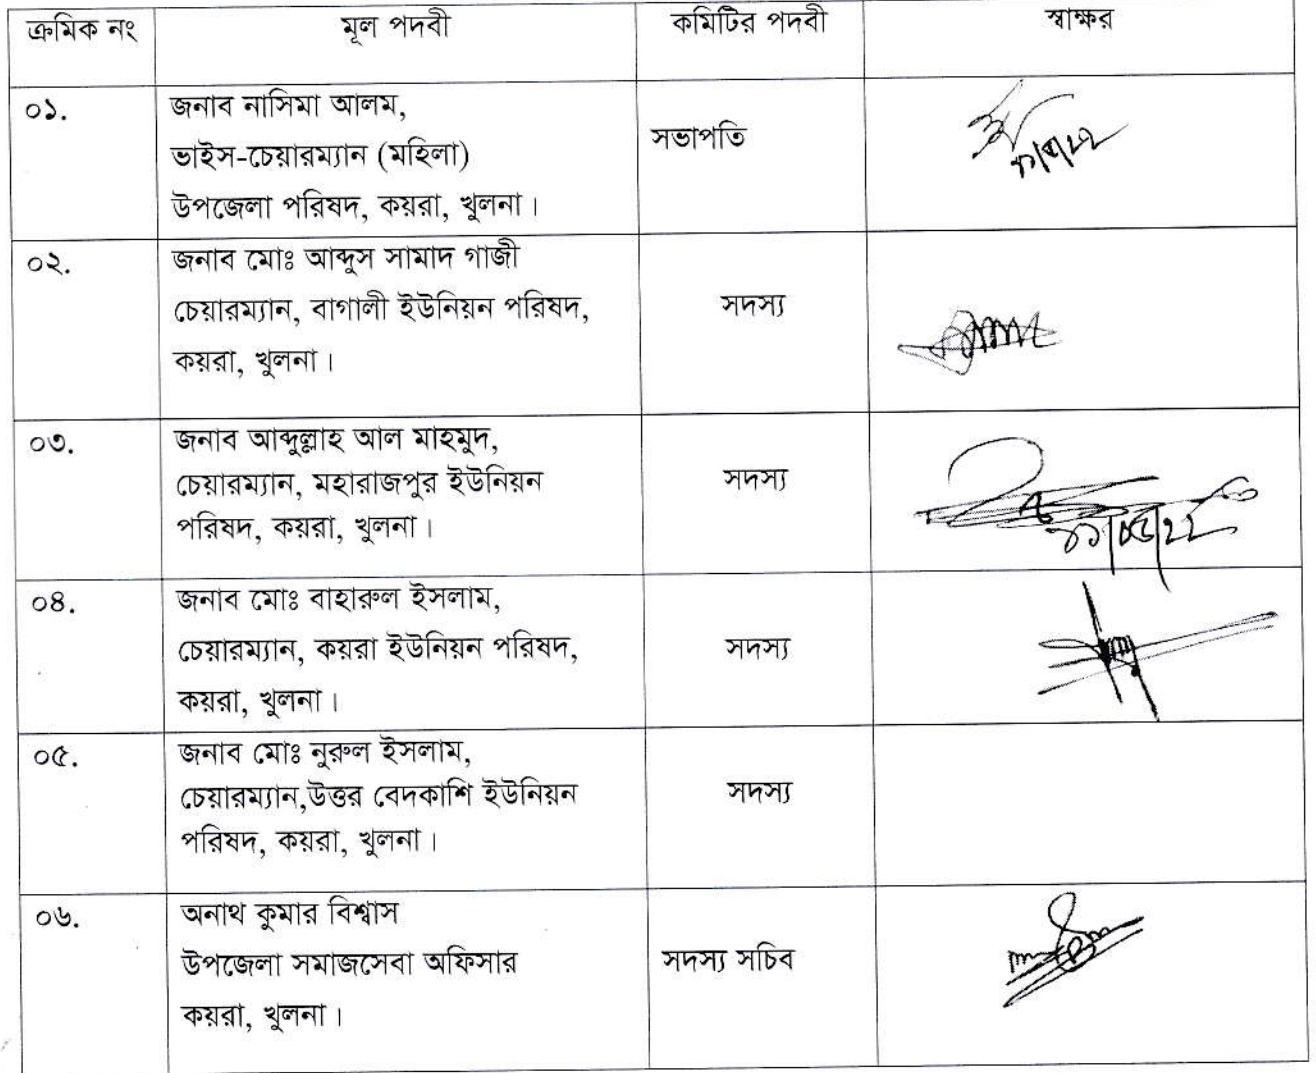 ক্রমিক নং মূল পদবী কমিটির পদবী স্বাক্ষর
০১. জনাব নাসিমা আলম,
ভাইস-চেয়ারম্যান (মহিলা) সভাপতি
উপজেলা পরিষদ, কয়রা, খুলনা।
০২. জনাব মোঃ আব্দুস সামাদ গাজী
চেয়ারম্যান, বাগালী ইউনিয়ন পরিষদ, সদস্য
কয়রা, খুলনা।
০৩. জনাব আব্দুল্লাহ আল মাহমুদ,
চেয়ারম্যান, মহারাজপুর ইউনিয়ন সদস্য
পরিষদ, কয়রা, খুলনা।
০৪. জনাব মোঃ বাহারুল ইসলাম,
চেয়ারম্যান, কয়রা ইউনিয়ন পরিষদ, সদস্য
কয়রা, খুলনা।
০৫. জনাব মোঃ নুরুল ইসলাম,
চেয়ারম্যান,উত্তর বেদকাশি ইউনিয়ন সদস্য
পরিষদ, কয়রা, খুলনা।
০৬. অনাথ কুমার বিশ্বাস
উপজেলা সমাজসেবা অফিসার সদস্য সচিব
কয়রা, খুলনা।